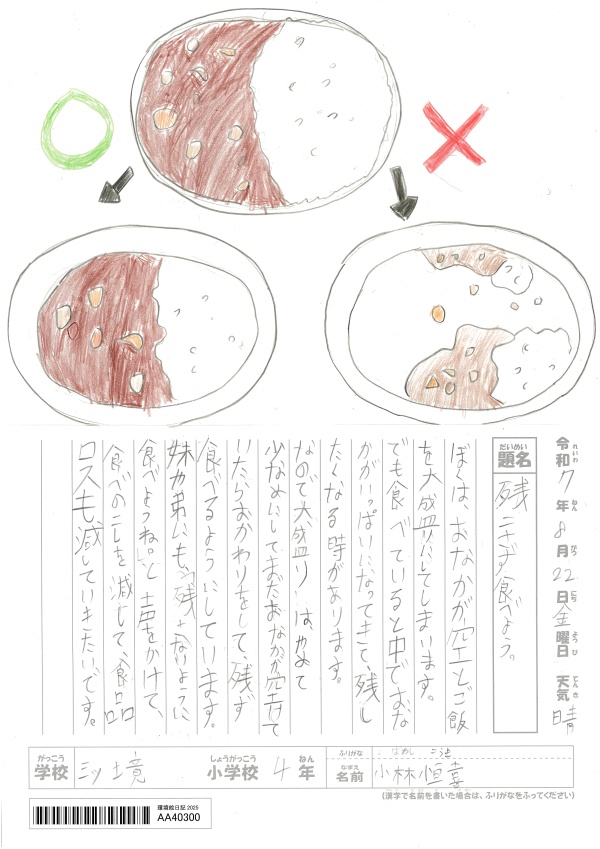 令和7年8月22日金曜日 天気 晴
れいわ ねん がつ にち ようび てんき
題名 残さず食べよう。
だいめい
ぼくは、おなかが空くとご飯
を大盛りにしてしまいます。
でも食べていると中でおな
かがいっぱいになってきて、残し
たくなる時があります。
なので大盛りはやめて
少なめにしてまたおなかが空いて
いたらおかわりをして、残ず
食べるようにしています。
妹や弟にも「残さないように
食べようね。」と声をかけて、
食べのこしを減して、食品
ロスも減していきたいです。
がっこう しょうがっこう ねん ふりがな
学校 三ツ境 小学校 4年 なまえ 名前 小林恒喜
(漢字で名前を書いた場合は、ふりがなをふってください)
環境絵日記 2025
AA40300